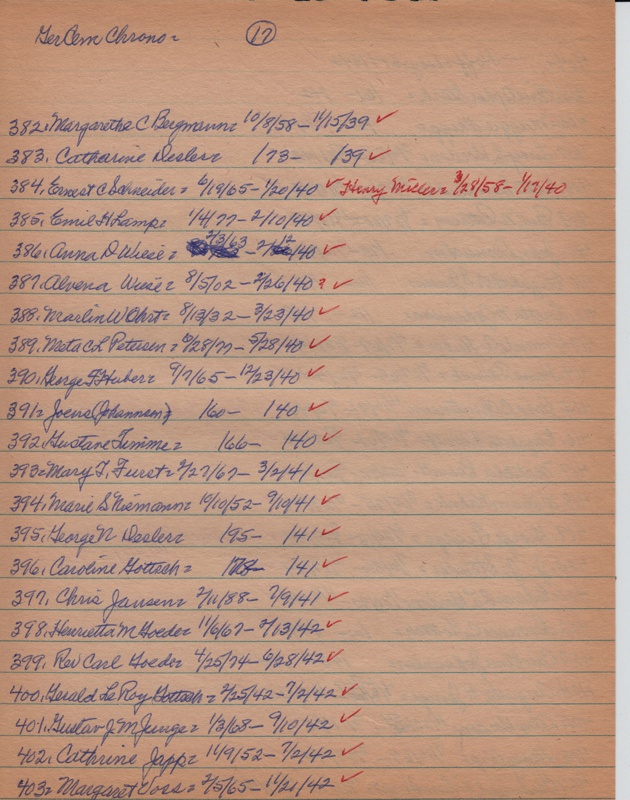 Ger Cem Chrono= 17
382. Margarethe C Bergmann= 10/8/58 – 11/15/39 ✓
383. Catharine Desler= /73 – /39 ✓
384. Ernest C Schneider= 6/19/65 – 1/20/40 ✓ Henry Miller= 3/28/58 – 1/17/40
385. Emil H Lamp= 1/4/77 – 2/10/40 ✓
386. Anna D Wiese= 2/3/63 – 2/12/40 ✓
387. Alvena Wiese= 8/5/02 – 2/26/40 ? ✓
388. Marlin W Ohrt= 8/13/32 – 3/23/40 ✓
389. Meta C L Petersen= /28/77 – 5/28/40 ✓
390. George F Huber= 9/7/65 – 12/23/40 ✓
391= Joens (Johannsen) 160 – 140 ✓
392. Gustave Timme= 166 – 140 ✓
393= Mary T. Furst= /27/67 – 3/2/41 ✓
394. Marie S Niemann= 10/10/52 – 9/10/41 ✓
395. George N Desler= 195 – 141 ✓
396. Caroline Gottsch= – 141 ✓
397. Chris Jansen= 2/11/88 – 7/9/41 ✓
398. Henrietta M Goede= 11/6/67 – 2/13/42 ✓
399. Rev Carl Goede= 4/25/74 – 6/28/42 ✓
400. Gerald Le Roy Gottsch= 2/25/42 – 7/2/42 ✓
401. Gustav J M Junge= 1/3/68 – 9/10/42 ✓
402. Cathrine Japp= 11/9/52 – 7/2/42 ✓
403= Margaret Voss= 2/5/65 – 11/21/42 ✓